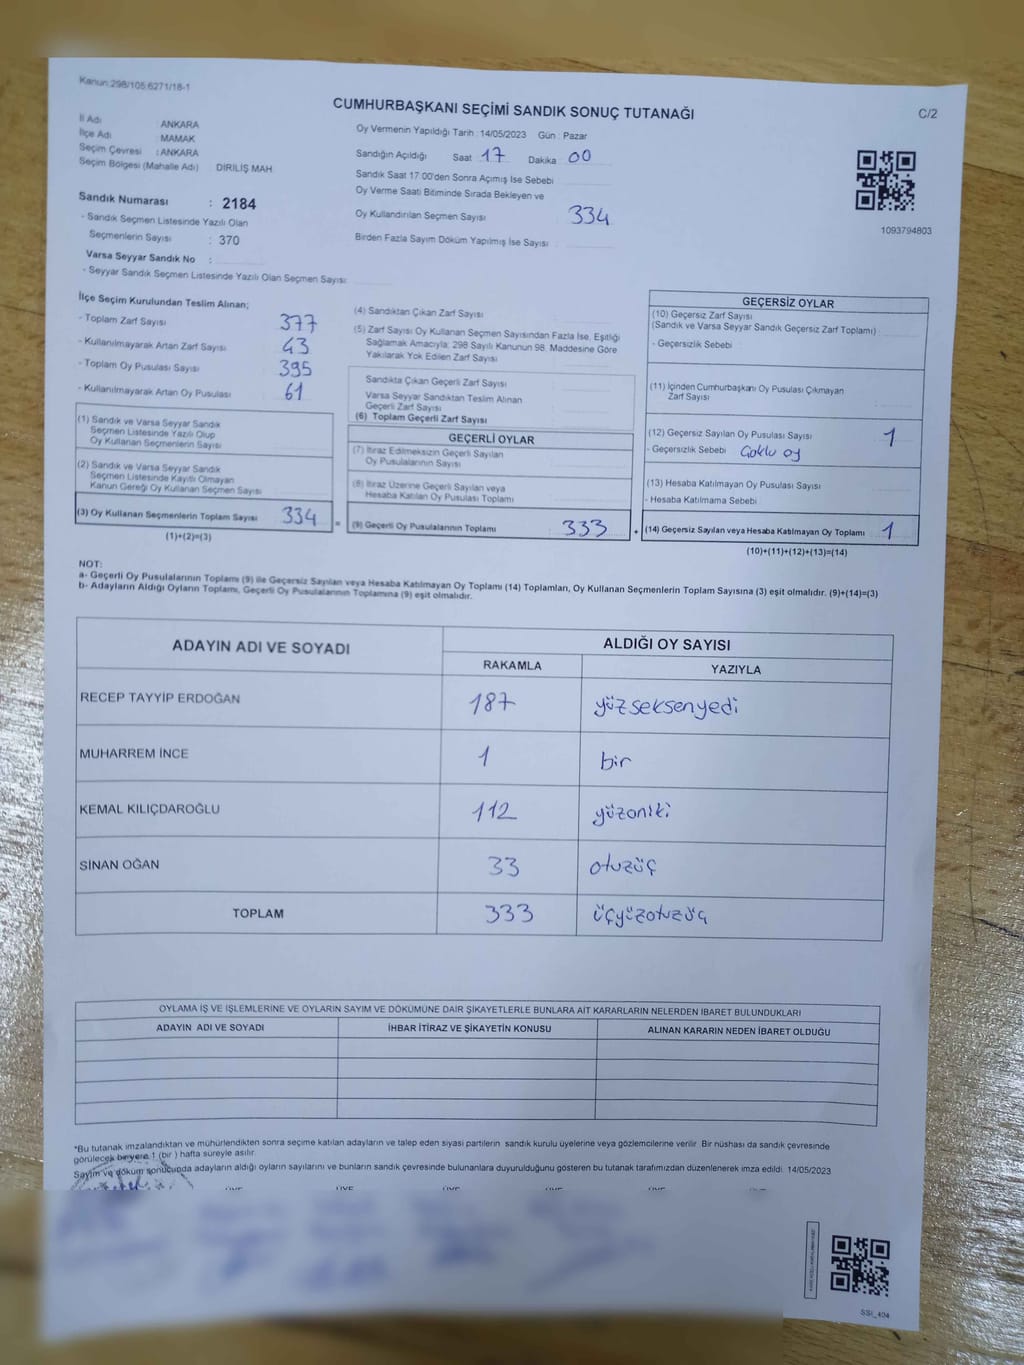 Kanun:298/105.6271/18-1
CUMHURBAŞKANI SEÇİMİ SANDIK SONUÇ TUTANAĞI
C/2
İl Adı : ANKARA
İlçe Adı : MAMAK
Seçim Çevresi : ANKARA
Seçim Bölgesi (Mahalle Adı) DİRİLİŞ MAH
Oy Vermenin Yapıldığı Tarih : 14/05/2023 Gün : Pazar
Sandığın Açıldığı Saat 17 Dakika 00
Sandık Saat 17:00'den Sonra Açımış İse Sebebi
Oy Verme Saati Bitiminde Sırada Bekleyen ve
Oy Kullandırılan Seçmen Sayısı 334
Birden Fazla Sayım Döküm Yapılmış İse Sayısı
1093794803
Sandık Numarası : 2184
- Sandık Seçmen Listesinde Yazılı Olan
Seçmenlerin Sayısı : 370
Varsa Seyyar Sandık No :
- Seyyar Sandık Seçmen Listesinde Yazılı Olan Seçmen Sayısı:
İlçe Seçim Kurulundan Teslim Alınan;
- Toplam Zarf Sayısı 377
- Kullanılmayarak Artan Zarf Sayısı 43
- Toplam Oy Pusulası Sayısı 395
- Kullanılmayarak Artan Oy Pusulası 61
(1) Sandık ve Varsa Seyyar Sandık
Seçmen Listesinde Yazılı Olup
Oy Kullanan Seçmenlerin Sayısı
(2) Sandık ve Varsa Seyyar Sandık
Seçmen Listesinde Kayıtlı Olmayan
Kanun Gereği Oy Kullanan Seçmen Sayısı
(3) Oy Kullanan Seçmenlerin Toplam Sayısı 334 =
(1)+(2)=(3)
(4) Sandıktan Çıkan Zarf Sayısı
(5) Zarf Sayısı Oy Kullanan Seçmen Sayısından Fazla İse, Eşitliği
Sağlamak Amacıyla; 298 Sayılı Kanunun 98. Maddesine Göre
Yakılarak Yok Edilen Zarf Sayısı
Sandıkta Çıkan Geçerli Zarf Sayısı
Varsa Seyyar Sandıktan Teslim Alınan
Geçerli Zarf Sayısı
(6) Toplam Geçerli Zarf Sayısı
GEÇERLİ OYLAR
(7) İtiraz Edilmeksizin Geçerli Sayılan
Oy Pusulalarının Sayısı
(8) İtiraz Üzerine Geçerli Sayılan veya
Hesaba Katılan Oy Pusulası Toplamı
(9) Geçerli Oy Pusulalarının Toplamı 333 +
GEÇERSİZ OYLAR
(10) Geçersiz Zarf Sayısı
(Sandık ve Varsa Seyyar Sandık Geçersiz Zarf Toplamı)
- Geçersizlik Sebebi
(11) İçinden Cumhurbaşkanı Oy Pusulası Çıkmayan
Zarf Sayısı
(12) Geçersiz Sayılan Oy Pusulası Sayısı 1
- Geçersizlik Sebebi Çoklu oy
(13) Hesaba Katılmayan Oy Pusulası Sayısı
- Hesaba Katılmama Sebebi
(14) Geçersiz Sayılan veya Hesaba Katılmayan Oy Toplamı 1
(10)+(11)+(12)+(13)=(14)
NOT:
a- Geçerli Oy Pusulalarının Toplamı (9) ile Geçersiz Sayılan veya Hesaba Katılmayan Oy Toplamı (14) Toplamları, Oy Kullanan Seçmenlerin Toplam Sayısına (3) eşit olmalıdır. (9)+(14)=(3)
b- Adayların Aldığı Oyların Toplamı, Geçerli Oy Pusulalarının Toplamına (9) eşit olmalıdır.
ADAYIN ADI VE SOYADI ALDIĞI OY SAYISI
RAKAMLA YAZIYLA
RECEP TAYYİP ERDOĞAN 187 yüzseksenyedi
MUHARREM İNCE 1 bir
KEMAL KILIÇDAROĞLU 112 yüzoniki
SİNAN OĞAN 33 otuzüç
TOPLAM 333 üçyüzotuzüç
OYLAMA İŞ VE İŞLEMLERİNE VE OYLARIN SAYIM VE DÖKÜMÜNE DAİR ŞİKAYETLERLE BUNLARA AİT KARARLARIN NELERDEN İBARET BULUNDUKLARI
ADAYIN ADI VE SOYADI İHBAR İTİRAZ VE ŞİKAYETİN KONUSU ALINAN KARARIN NEDEN İBARET OLDUĞU
*Bu tutanak imzalandıktan ve mühürlendikten sonra seçime katılan adayların ve talep eden siyasi partilerin sandık kurulu üyelerine veya gözlemcilerine verilir. Bir nüshası da sandık çevresinde
görülecek bir yere 1 (bir ) hafta süreyle asılır.
Sayım ve döküm sonucunda adayların aldığı oyların sayılarını ve bunların sandık çevresinde bulunanlara duyurulduğunu gösteren bu tutanak tarafımızdan düzenlenerek imza edildi. 14/05/2023
SSI_404